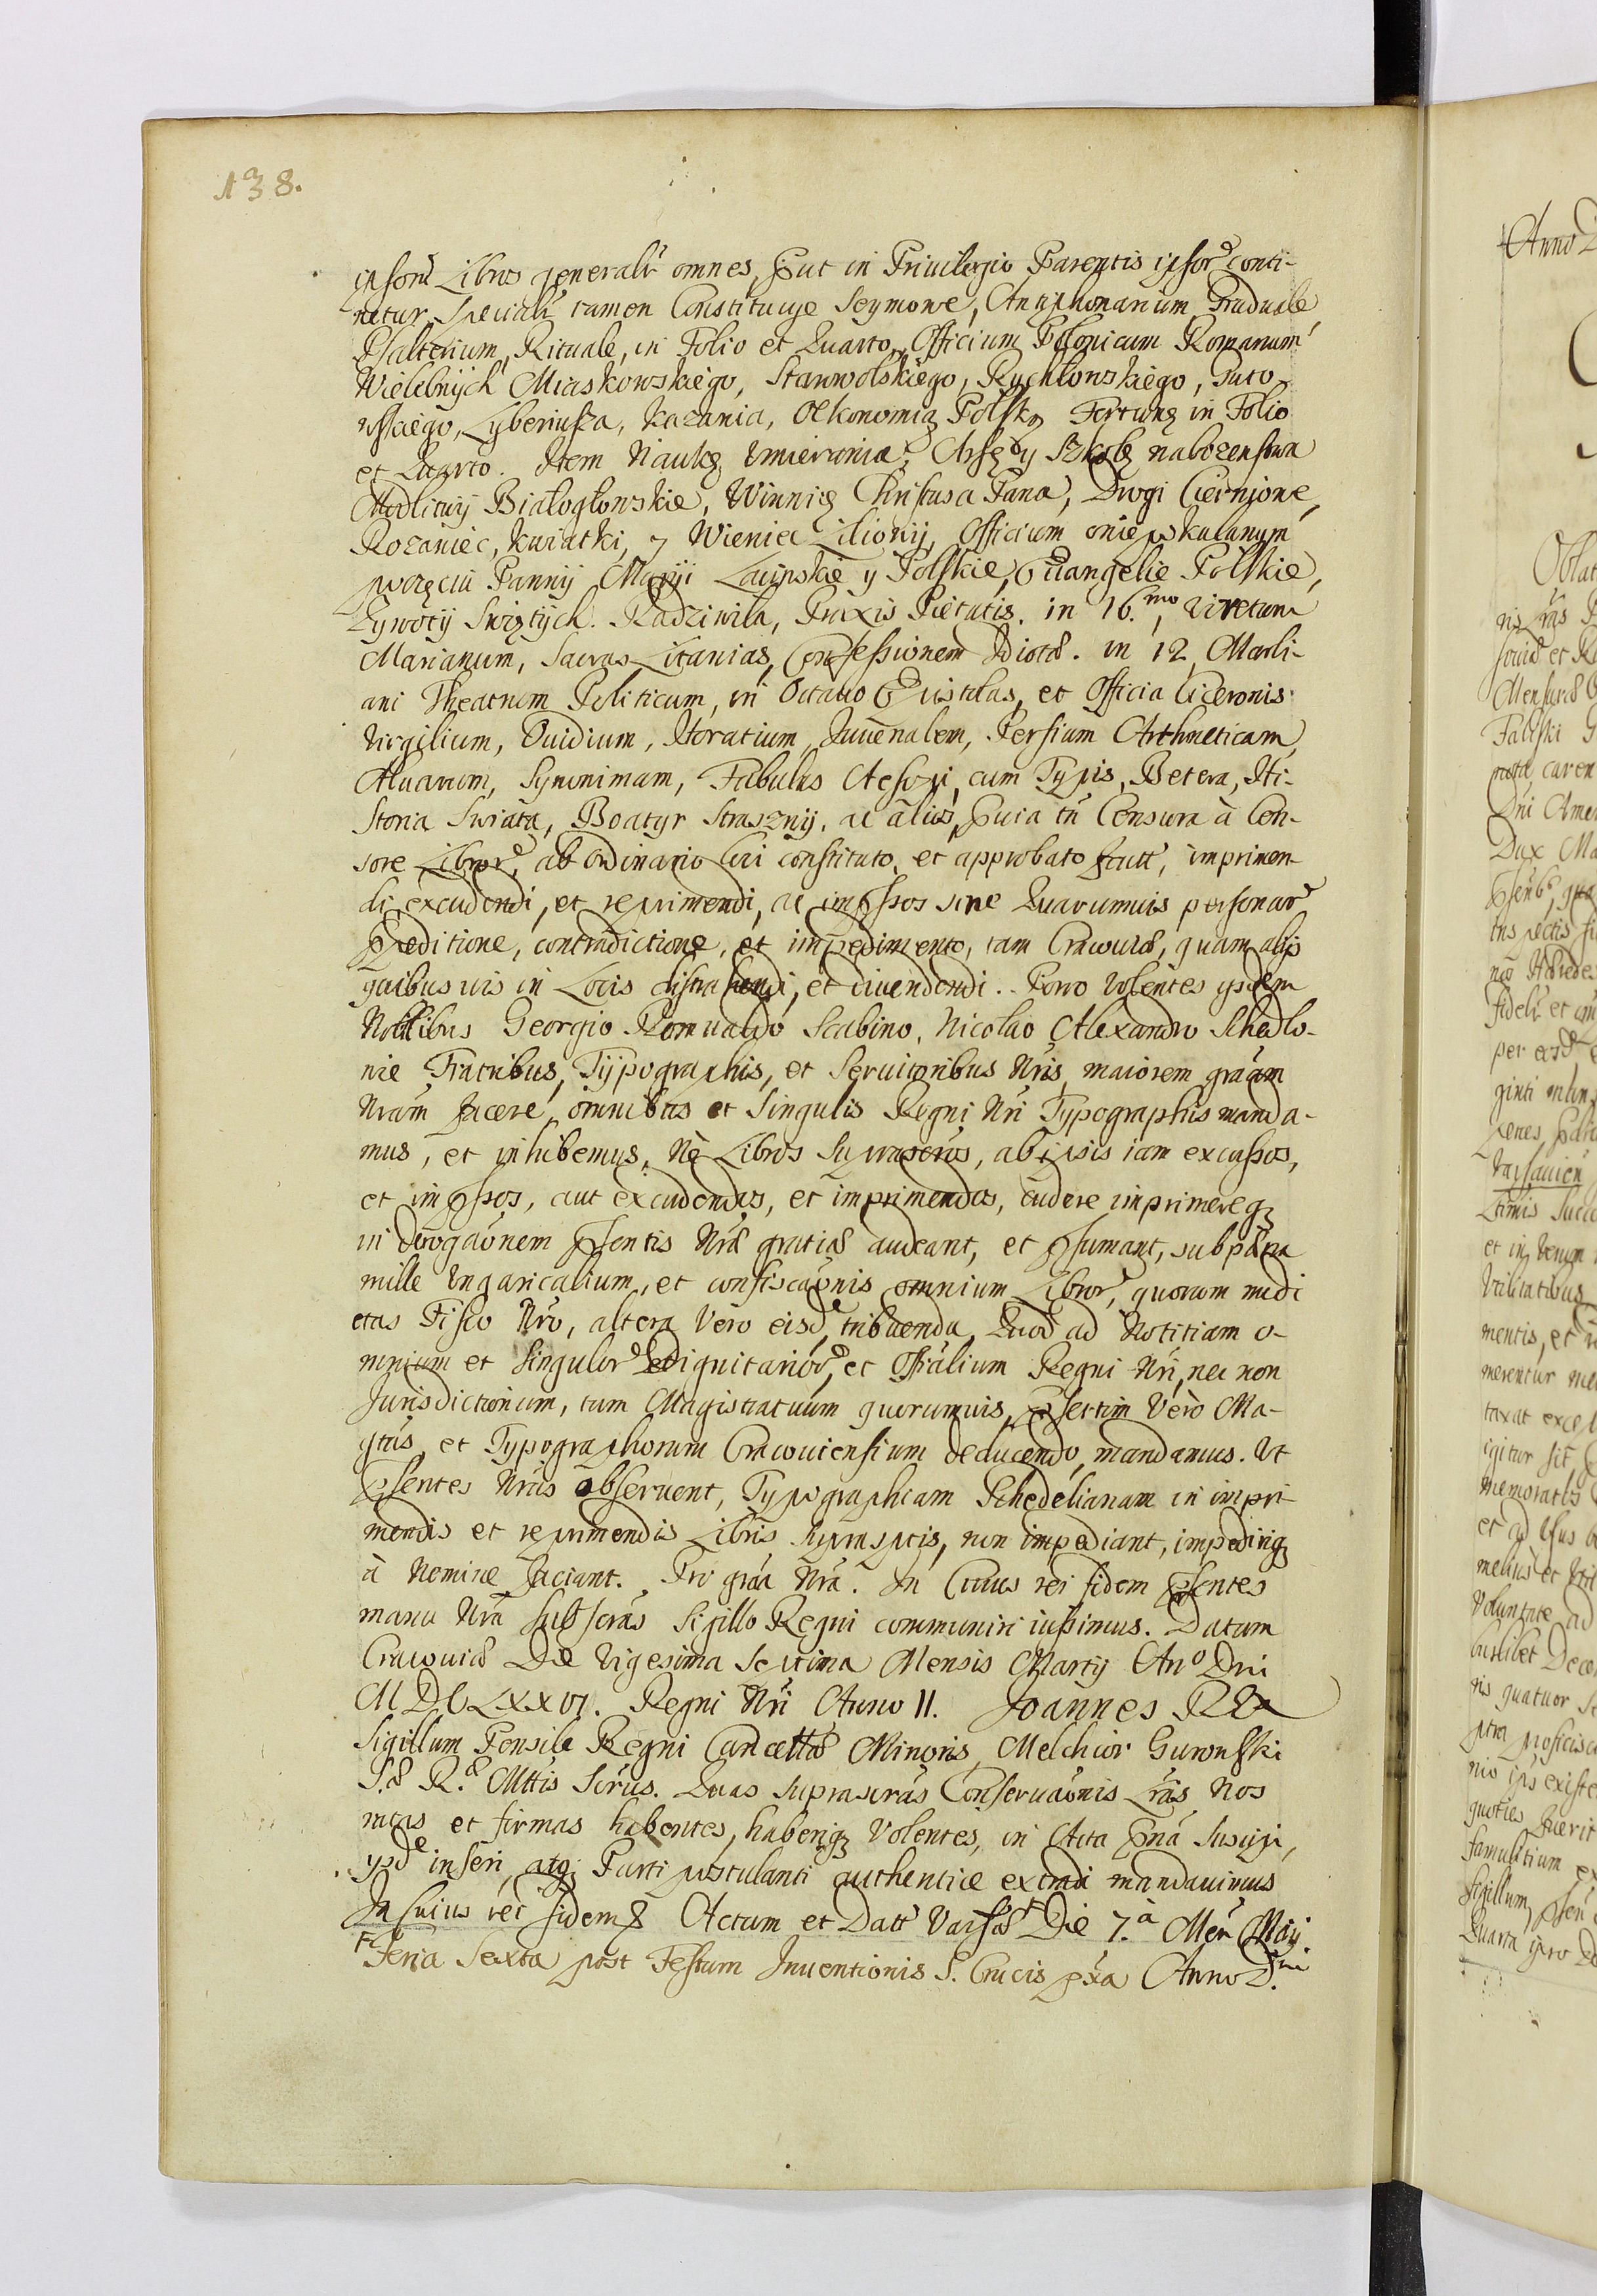 138.
ipsor Libros generalr omnes, put in Privilegio Parentis ipsor conti-
netur, specialr tamen Constitucye Seymowe, Antiphonarium Graduale,
Psalterium, Rituale, in Folio et Quarto, Officium Polonicum Romanum
Wielebnÿch Miaskowskiego, Starowolskiego, Rychłowskiego, Guto-
wskiego, Lyberiusza, kazania, Oekonomią Polską Fortunę in Folio
et Quarto. Item Naukę Umierania, Arsę y Szkołę nabozenstwa
Modlitwÿ Białogłowskie, Winnicę Christusa Pana, Drogi Cierniowe,
Rozaniec, kwiatki, y Wieniec Liliowÿ, Officium o niepokalanym
poczęciu Pannÿ Maryi Łacinskie y Polskie, Evangelie Polskie,
Zywotÿ Swiętÿch. Radziwiła, Praxis Pietatis. in 16.mo, Viretum
Marianum, Sacras Litanias, Confessionem Idiotæ. in 12 Marli-
ani Theatrum Politicum, in Octavo Epistolas, et Officia Ciceronis
Virgilium, Ouidium, Horatium, Juuenalem, Persium Arthmeticam,
Aluarum, Synonimam, Fabulas Aesopi, cum Typis, Betera, Hi-
storia Swiata, Boatyr Strasznÿ, ac alios, pvia tn Censura à Cen-
sore Libror, ab Ordinario Loci constituto, et approbato fcatt, imprimen-
di, excudendi, et reprimendi, ac impssos sine Quarumuis personar
peditione, contradictione, et impedimento, tam Cracouiæ, quam alijs
quibusuis in Locis distrahendi, et diuendendi. Porro Volentes ysdem
Nobilibus Georgio Romualdo Scabino, Nicolao Alexandro Schedlo-
nie Fratribus, Typographis, et Seruitoribus Nris maiorem graam
Nram facere, omnibus et Singulis Regni Nri Typographis manda-
mus, et inhibemus, Nè Libros Suprascros, ab ipsis iam excussos,
et impssos, aut excudendos, et imprimendos, cudere imprimereq
in derogaonem psentis Nræ gratiæ audeant, et psumant, sub pæna
mille Ungaricalium, et confiscaonis omnium Libror, quorum medi
etas Fisco Nro, altera Vero eisd tribuenda, Quod ad Notitiam o-
mnium et Singulor Dignitarior, et Offialium Regni Nri, nec non
Jurisdictionum, tum Magistratuum quorumuis, psertim Verò Ma-
gtus, et Typographorum Cracouiensium deducendo, mandamus. Ut
psentes Nras obseruent, Typographiam Schedelianam in impri-
mendis et reprimendis Libris supraspcis, non impediant, impediriq
à Nemine faciant. Pro graa Nra. In Cuius rei fidem psentes
manu Nra subscras Sigillo Regni communiri iussimus. Datum
Cracouiæ Die Vigesima Septima Mensis Martij Ano Dni
MDCLXXVI. Regni Nri Anno II. Joannes REx
Sigillum Pensile Regni Cancellæ Minoris Melchior Gurowski
S.æ R.æ Mttis Scrus. Quas suprascras Conseruaonis Lras Nos
ratas et firmas habentes, haberiq Volentes, in Acta pna suscipi,
ysde inseri, atq Parti postulanti authentice extradi mandauimus
In cuius rei fidem Actum et Datt Varsæ Die 7.a Men Maij.
Feria Sexta post Festum Inuentionis S. Crucis pxa Anno D.ni